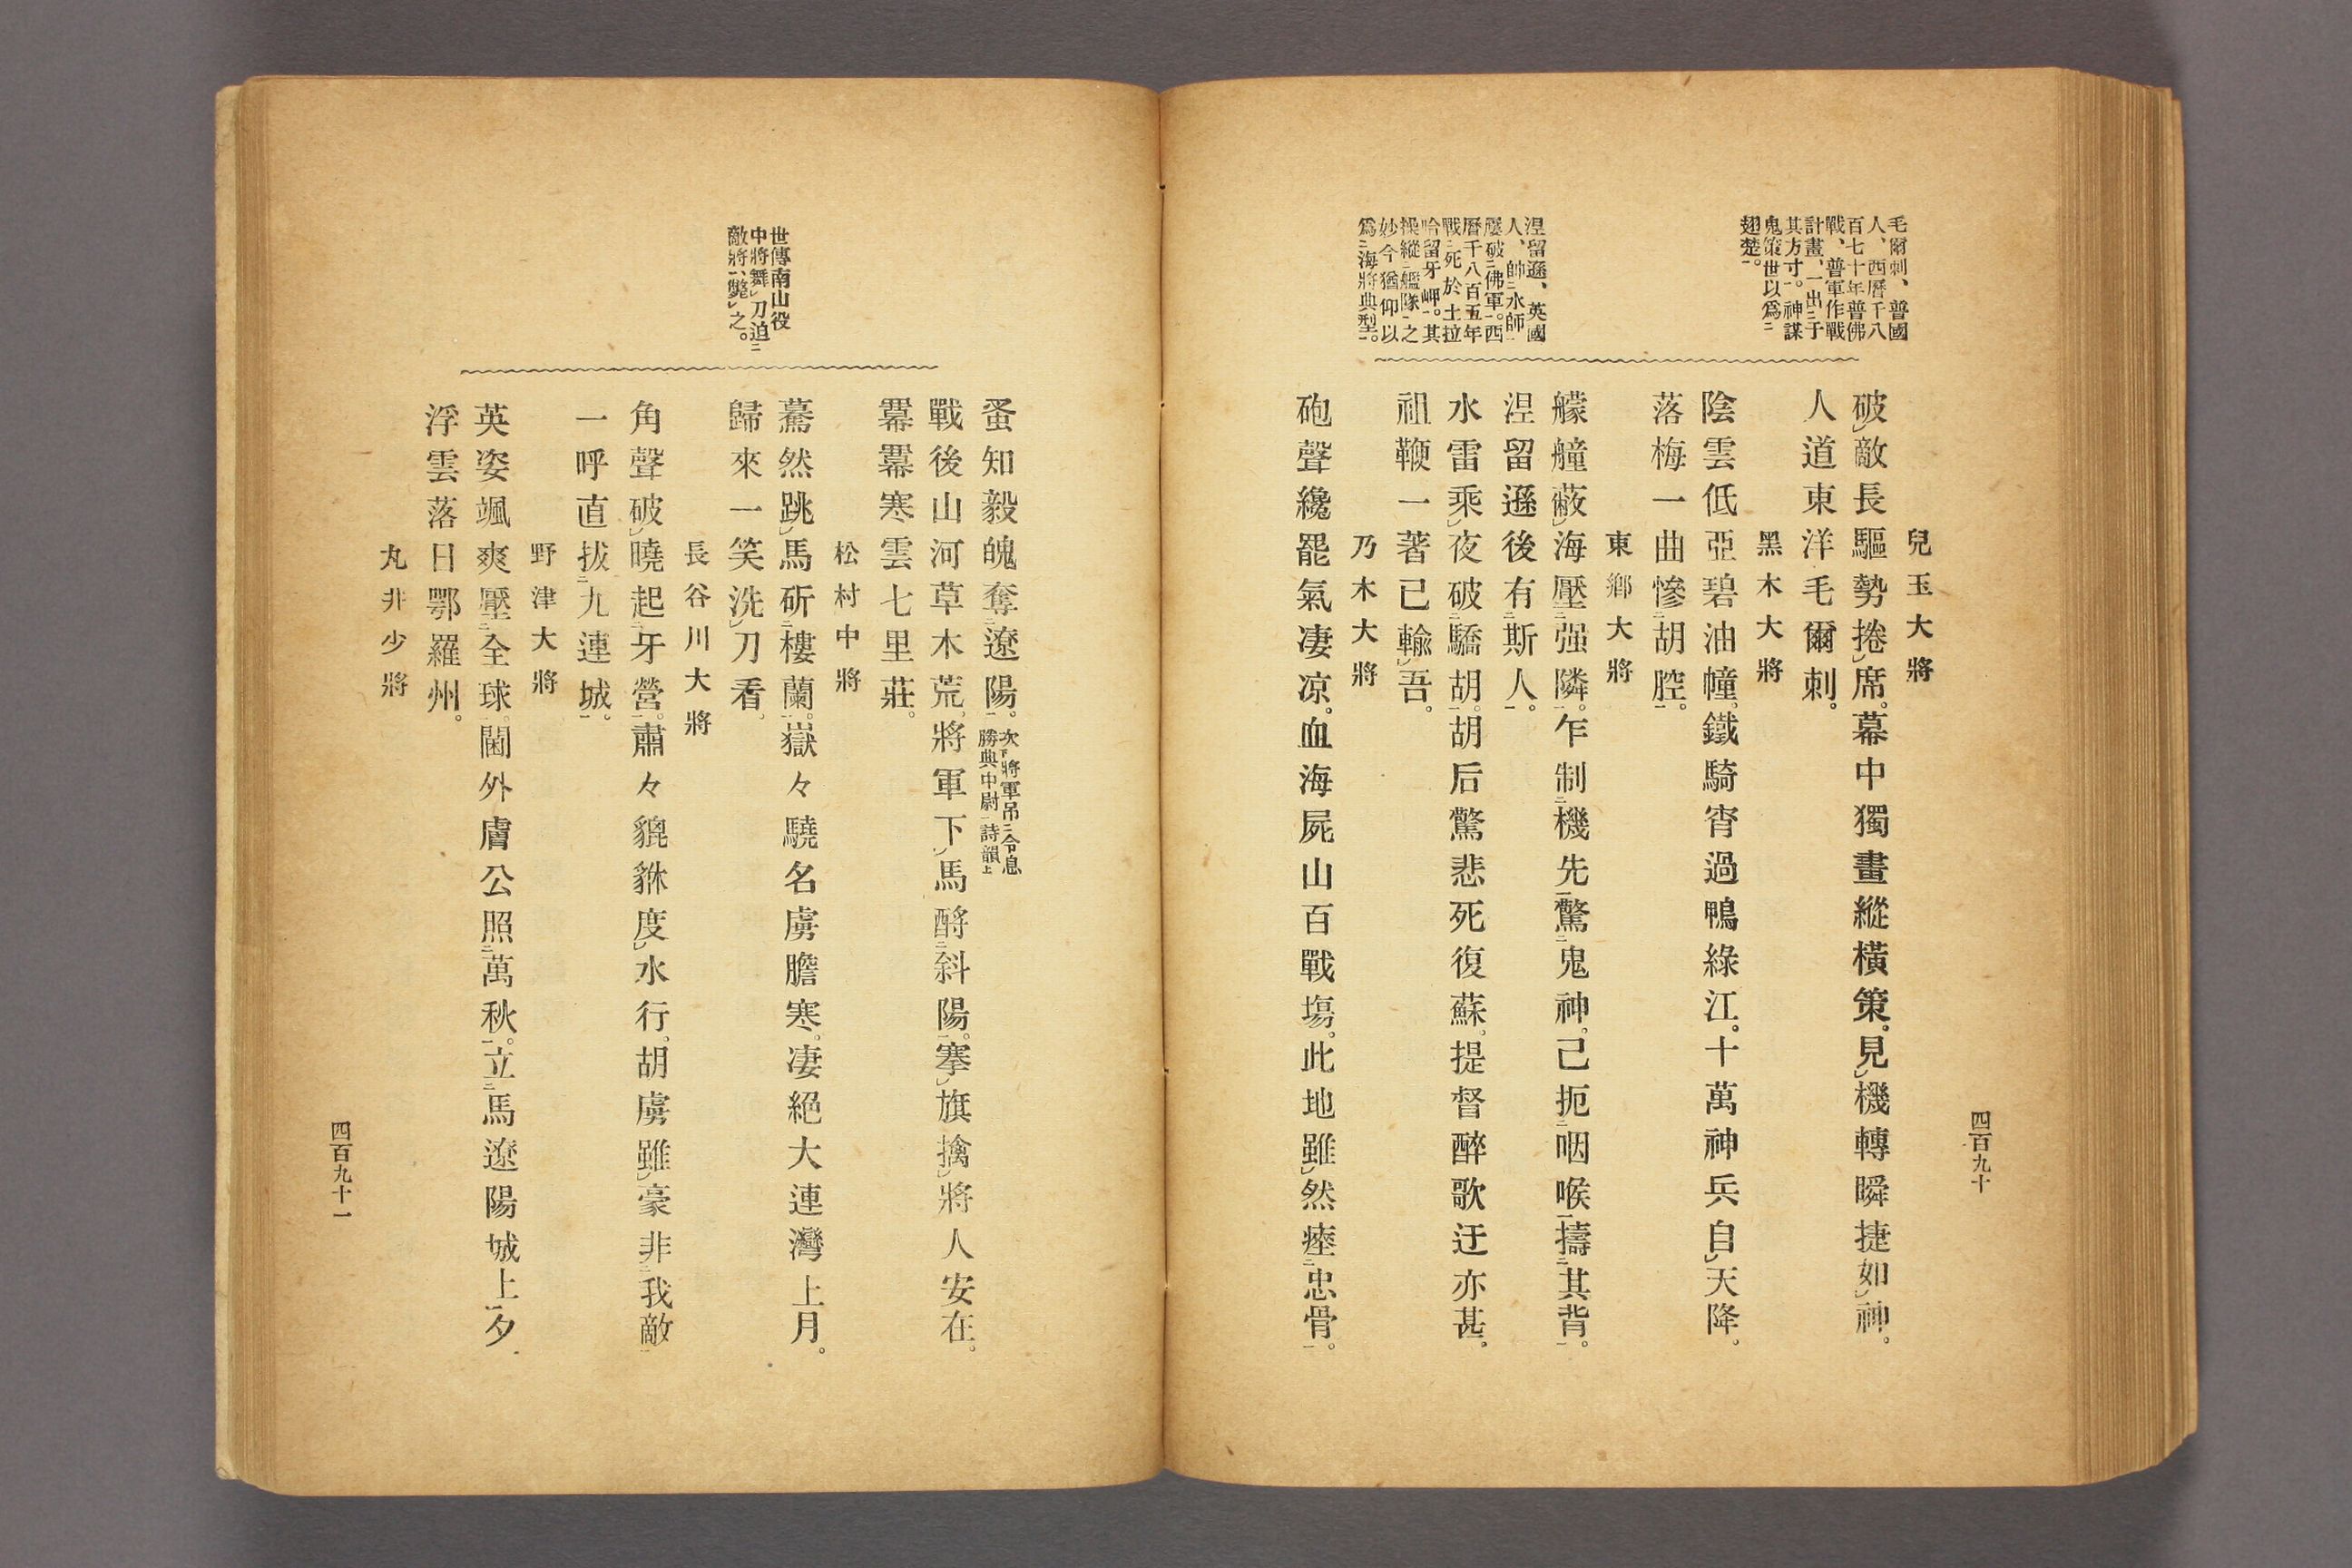 毛爾刺、普國
人、西曆千八
百七十年普佛
戰、普軍作戰
計畫、一出二于
其方寸一。神謀
鬼策世以爲二
翅楚一。
涅留遜、英國
人、帥二水師一
屢破二佛軍一。西
曆千八百五年
戰二死於士拉
哈留牙岬一。其
操縱二艦隊一之
妙今猶仰以
爲二海將典型一。
兒玉大將
破レ敵長驅勢捲レ席。幕中獨畫縱橫策。見レ機轉瞬捷如レ神。
人道東洋毛爾刺。
黑木大將
陰雲低亞碧油幢。鐵騎宵過鴨綠江。十萬神兵自レ天降。
落梅一曲慘二胡腔一。
東鄉大將
艨艟蔽レ海壓二强隣一。乍制二機先一驚二鬼神一。已扼二咽喉一擣二其背一。
涅留遜後有二斯人一。
水雷乘レ夜破二驕胡一。胡后驚悲死復蘇。提督醉歌迂亦甚。
祖鞭一著已輸レ吾。
乃木大將
砲聲纔罷氣凄凉。血海屍山百戰塲。此地雖レ然瘞二忠骨一。
四百九十
世傳南山役
中將舞レ刀迫二
敵將一、斃レ之。
蚤知毅魄奪二遼陽一。次下將軍吊二令息
勝典中尉一詩韻上
戰後山河草木荒。將軍下レ馬酹二斜陽一。搴レ旗擒レ將人安在。
羃羃寒雲七里莊。
松村中將
驀然跳レ馬斫二樓蘭一。嶽々驍名虜膽寒。凄絕大連灣上月。
歸來一笑洗レ刀看。
長谷川大將
角聲破レ曉起二牙營一。肅々貔貅度レ水行。胡虜雖レ豪非二我敵一
一呼直拔二九連城一。
野津大將
英姿颯爽壓二全球一。閫外膚公照二萬秋一。立二馬遼陽城上一夕
浮雲落日鄂羅州。
丸井少將
四百九十一